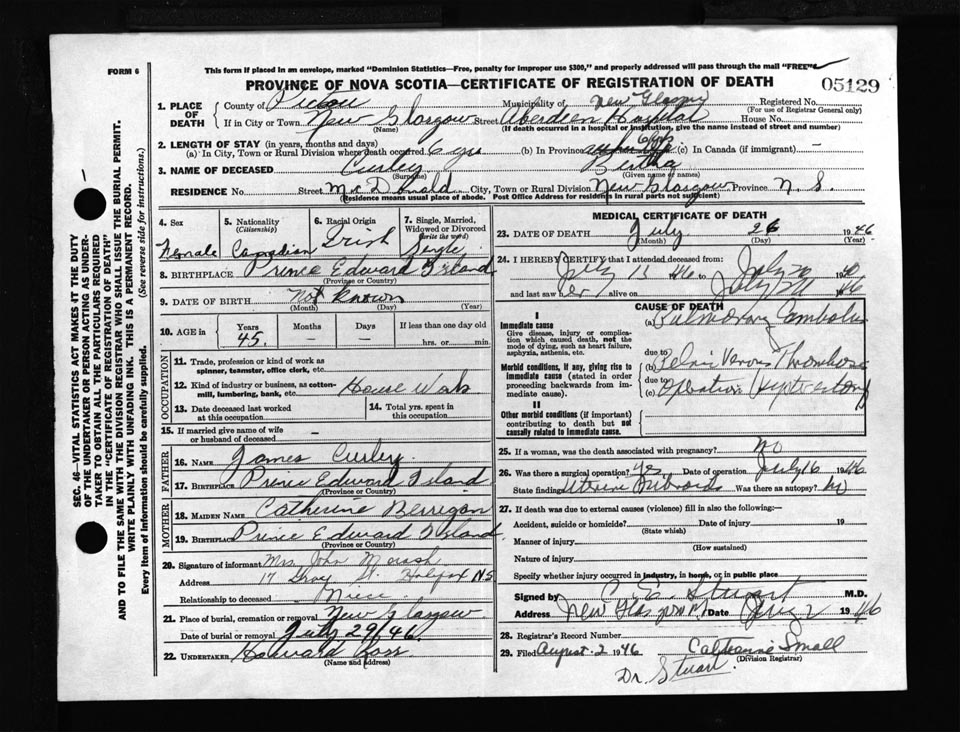 This form if placed in an envelope, marked "Dominion Statistics—Free, penalty for improper use $300," and properly addressed will pass through the mail "FREE"
FORM 6
PROVINCE OF NOVA SCOTIA—CERTIFICATE OF REGISTRATION OF DEATH
05129
1. PLACE OF DEATH
County of Pictou Municipality of New Glasgow Registered No.
(For use of Registrar General only)
If in City or Town New Glasgow Street Aberdeen Hospital House No.
(Name) (If death occurred in a hospital or institution, give name instead of street and number)
2. LENGTH OF STAY (in years, months and days)
(a) In City, Town or Rural Division where death occurred 6 yrs (b) In Province (c) In Canada (if immigrant) —
3. NAME OF DECEASED Curley Bertha
(Surname) (Given name or names)
RESIDENCE No. Street McDonald City, Town or Rural Division New Glasgow Province N. S.
(Residence means usual place of abode. Post Office Address for residents in rural parts not sufficient)
4. Sex
Female
5. Nationality
(Citizenship)
Canadian
6. Racial Origin
Irish
7. Single, Married, Widowed or Divorced
(write the word)
Single
8. BIRTHPLACE Prince Edward Island
(Province or Country)
9. DATE OF BIRTH Not Known
(Month) (Day) (Year)
10. AGE in Years Months Days If less than one day old
45. — — hrs. or min.
OCCUPATION
11. Trade, profession or kind of work as spinner, teamster, office clerk, etc.
12. Kind of industry or business, as cotton-mill, lumbering, bank, etc. House Work
13. Date deceased last worked at this occupation
14. Total yrs. spent in this occupation
15. If married give name of wife or husband of deceased —
FATHER
16. NAME James Curley
17. BIRTHPLACE Prince Edward Island
(Province or Country)
MOTHER
18. MAIDEN NAME Catherine Berrigan
19. BIRTHPLACE Prince Edward Island
(Province or Country)
20. Signature of informant Mrs. John
Address 17 St. Halifax N S
Relationship to deceased Niece
21. Place of burial, cremation or removal New Glasgow
Date of burial or removal July 29/46
22. UNDERTAKER Howard Ross
(Name and Address)
MEDICAL CERTIFICATE OF DEATH
23. DATE OF DEATH July 26 1946
(Month) (Day) (Year)
24. I HEREBY CERTIFY that I attended deceased from:
July 13 46 to July 26
and last saw her alive on July 46
CAUSE OF DEATH
I
Immediate cause
Give disease, injury or complication which caused death, not the mode of dying, such as heart failure, asphyxia, asthenia, etc.
(a) Pulmonary Embolus
due to
Morbid conditions, if any, giving rise to immediate cause (stated in order proceeding backwards from immediate cause).
(b) Pelvic Venous Thrombosis
due to
(c) Operation Hysterectomy
II
Other morbid conditions (if important) contributing to death but not causally related to immediate cause.
25. If a woman, was the death associated with pregnancy? No
26. Was there a surgical operation? yes Date of operation July 16 1946
State findings Uterine Fibroids Was there an autopsy? No
27. If death was due to external causes (violence) fill in also the following:—
Accident, suicide or homicide? Date of injury 19
(State which)
Manner of injury
(How sustained)
Nature of injury
Specify whether injury occurred in industry, in home, or in public place
Signed by C. E. Stuart M.D.
Address New Glasgow Date 1946
28. Registrar's Record Number
29. Filed August 2 1946 Catherine Small
(Division Registrar)
Dr. Stuart.
SEC. 46—VITAL STATISTICS ACT MAKES IT THE DUTY
OF THE UNDERTAKER OR PERSON ACTING AS UNDER-
TAKER TO OBTAIN ALL THE PARTICULARS REQUIRED
IN THE "CERTIFICATE OF REGISTRATION OF DEATH"
AND TO FILE THE SAME WITH THE DIVISION REGISTRAR WHO SHALL ISSUE THE BURIAL PERMIT.
WRITE PLAINLY WITH UNFADING INK. THIS IS A PERMANENT RECORD.
Every item of information should be carefully supplied. (See reverse side for instructions.)